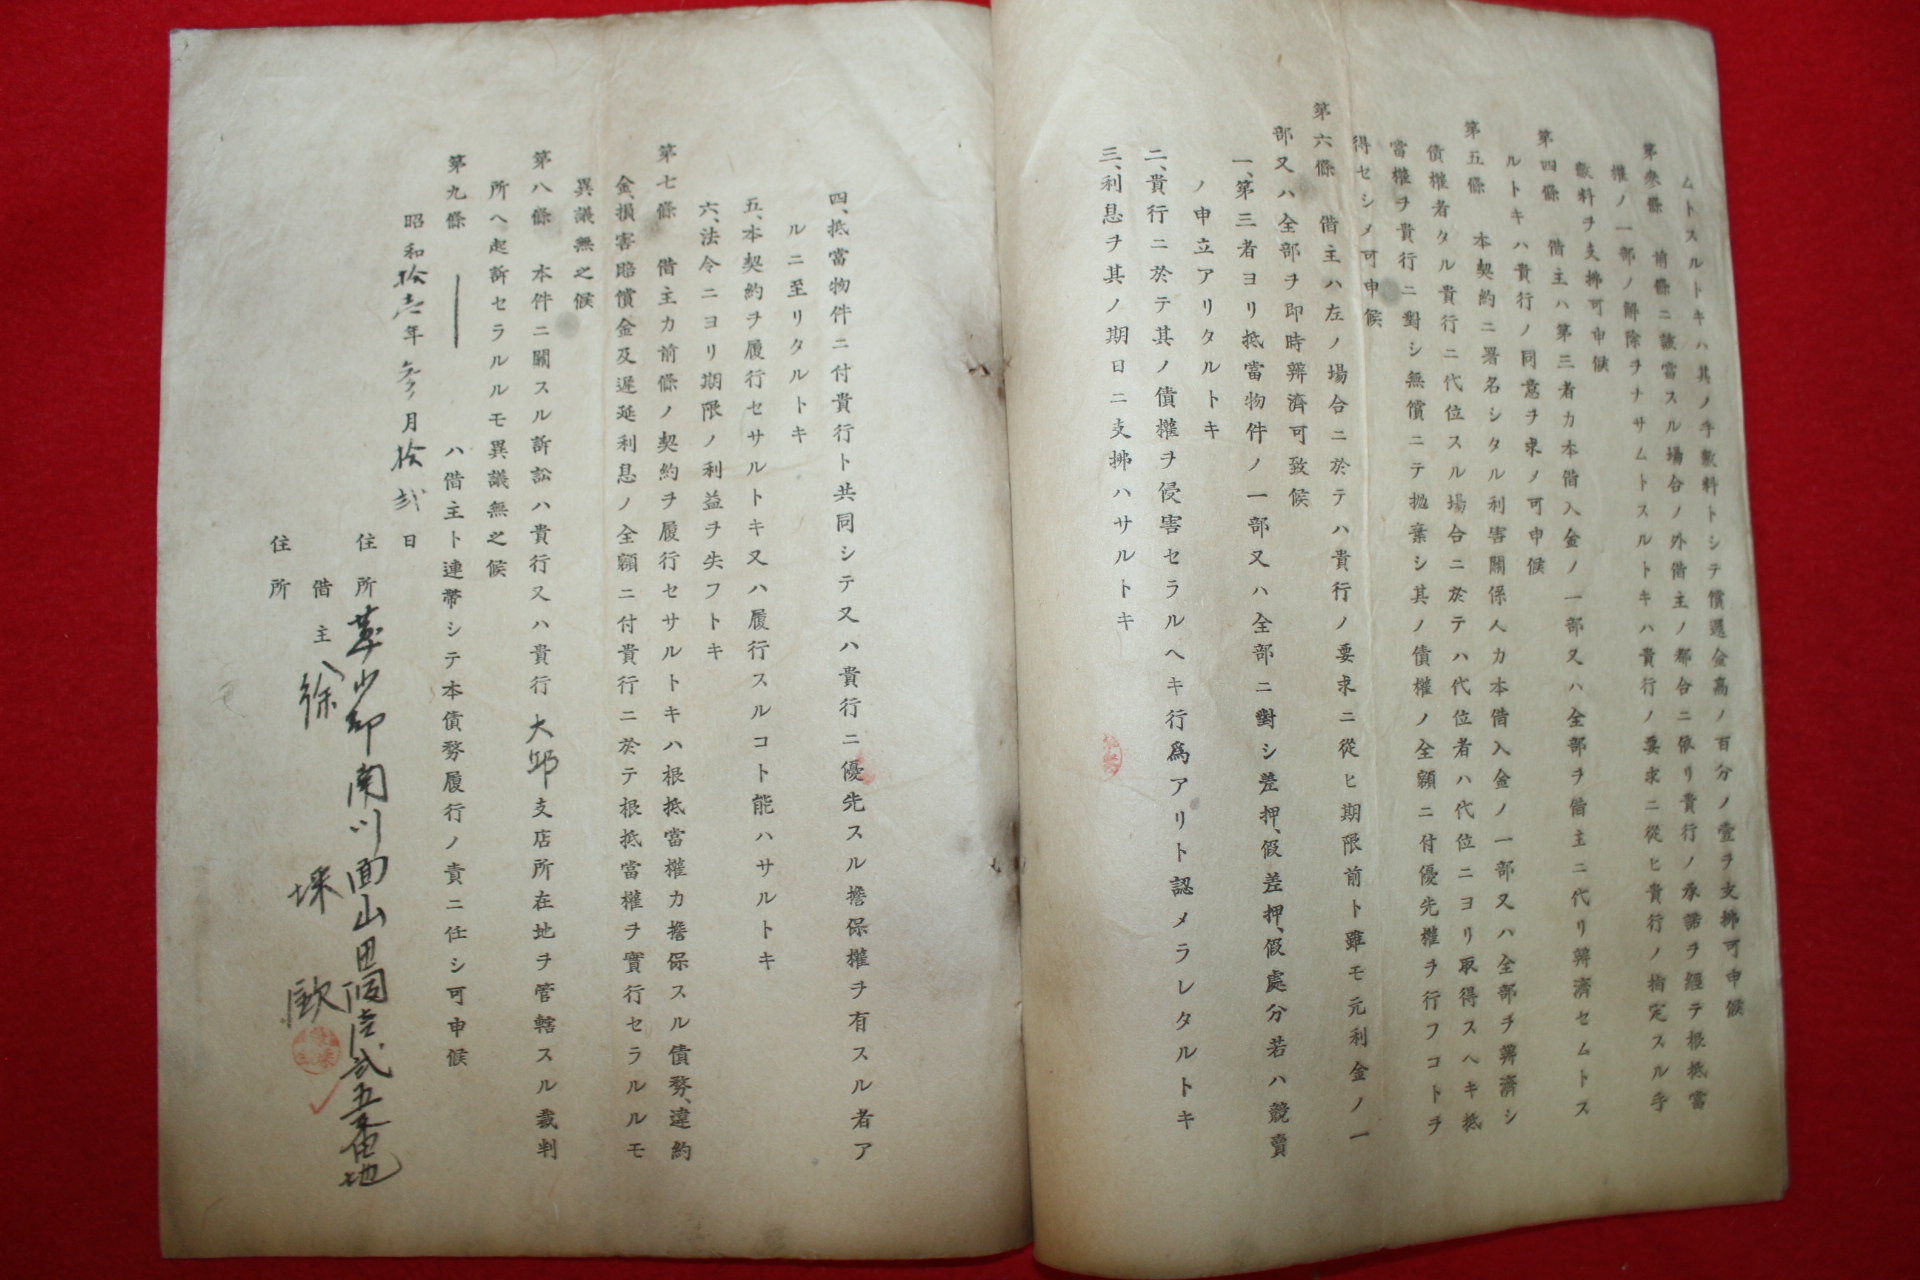 ムトスルトキハ其ノ手數料トシテ償還金高ノ百分ノ壹ヲ支拂可申候
第參條　前條ニ該當スル場合ノ外借主ノ都合ニ依リ貴行ノ承諾ヲ經テ根抵當
權ノ一部ノ解除ヲナサムトスルトキハ貴行ノ要求ニ從ヒ貴行ノ指定スル手
數料ヲ支拂可申候
第四條　借主ハ第三者カ本借入金ノ一部又ハ全部ヲ借主ニ代リ辨濟セムトス
ルトキハ貴行ノ同意ヲ求ノ可申候
第五條　本契約ニ署名シタル利害關保人カ本借入金ノ一部又ハ全部ヲ辨濟シ
債權者タル貴行ニ代位スル場合ニ於テハ代位者ハ代位ニヨリ取得スヘキ抵
當權ヲ貴行ニ對シ無償ニテ拋棄シ其ノ債權ノ全額ニ付優先權ヲ行フコトヲ
得セシメ可申候
第六條　借主ハ左ノ場合ニ於テハ貴行ノ要求ニ從ヒ期限前ト雖モ元利金ノ一
部又ハ全部ヲ即時辨濟可致候
一、第三者ヨリ抵當物件ノ一部又ハ全部ニ對シ差押、假差押、假處分若ハ競賣
ノ申立アリタルトキ
二、貴行ニ於テ其ノ債權ヲ侵害セラルヘキ行爲アリト認メラレタルトキ
三、利息ヲ其ノ期日ニ支拂ハサルトキ
四、抵當物件ニ付貴行ト共同シテ又ハ貴行ニ優先スル擔保權ヲ有スル者ア
ルニ至リタルトキ
五、本契約ヲ履行セサルトキ又ハ履行スルコト能ハサルトキ
六、法令ニヨリ期限ノ利益ヲ失フトキ
第七條　借主カ前條ノ契約ヲ履行セサルトキハ根抵當權カ擔保スル債務、違約
金、損害賠償金及遲延利息ノ全額ニ付貴行ニ於テ根抵當權ヲ實行セラルルモ
異議無之候
第八條　本件ニ關スル訴訟ハ貴行又ハ貴行大邱支店所在地ヲ管轄スル裁判
所ヘ起訴セラルルモ異議無之候
第九條　ハ借主ト連帶シテ本債務履行ノ責ニ任シ可申候
昭和拾壹年參月拾貳日
住所　山郡南川面山田洞壹貳五番地
借主　徐　埰　歐
住所